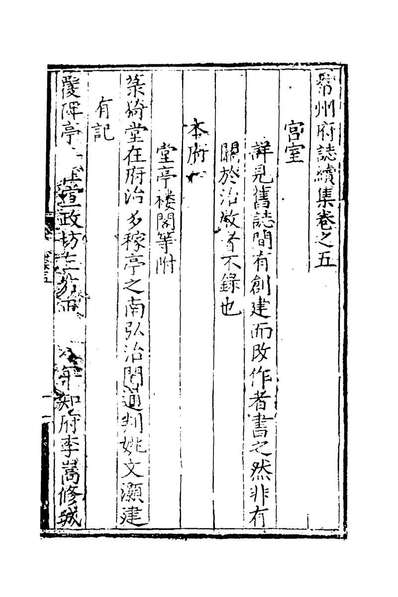 常州府誌續集卷之五
宫室
詳見舊誌間有創建而改作者書之然非有
關於治敎者不錄也
本府
堂亭楼閣等附
菉猗堂在府治多稼亭之南弘治間通判姚文灝建
有記
覆碑亭 宣政坊 年知府李嵩修城